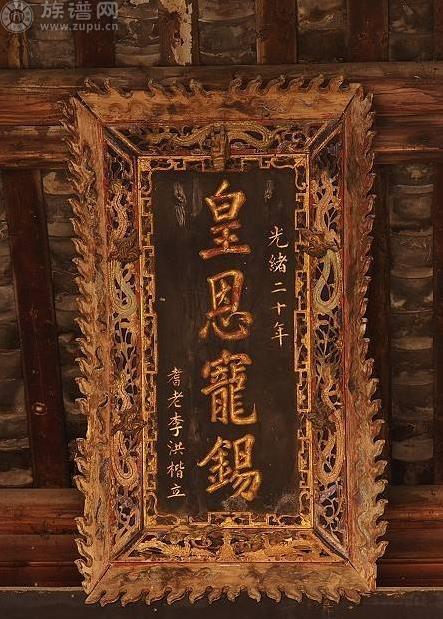 族谱网
www.zupu.cn
光緒二十年
皇恩寵錫
耆老李洪楷立